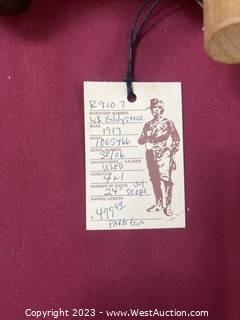 R910-7
INVENTORY NUMBER
US Eddystone
MAKE
1917
MODEL
1065466
SERIAL NUMBER
30/06
GAUGE/CHOKE - CALIBER
USED
CONDITION
4+1
NUMBER OF SHOTS W/
24" SCOPE
BARREL LENGTH
$ 499
PARTS GUN
Copyright © 2023 - www.WestAuction.com